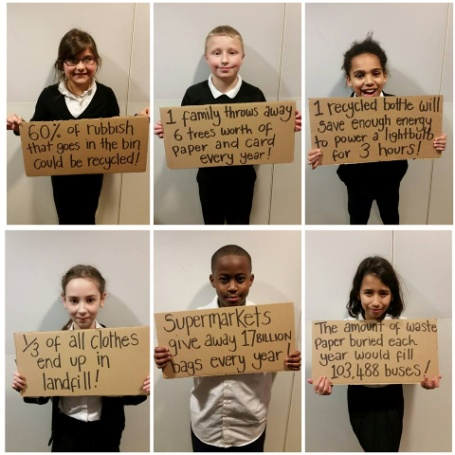 60% of rubbish
that goes in the bin
could be recycled!
1 family throws away
6 trees worth of
paper and card
every year!
1 recycled bottle will
save enough energy
to power a lightbulb
for 3 hours!
1/3 of all clothes
end up in
landfill!
Supermarkets
give away 17BILLION
bags every year!
The amount of waste
paper buried each
year would fill
103,488 buses!